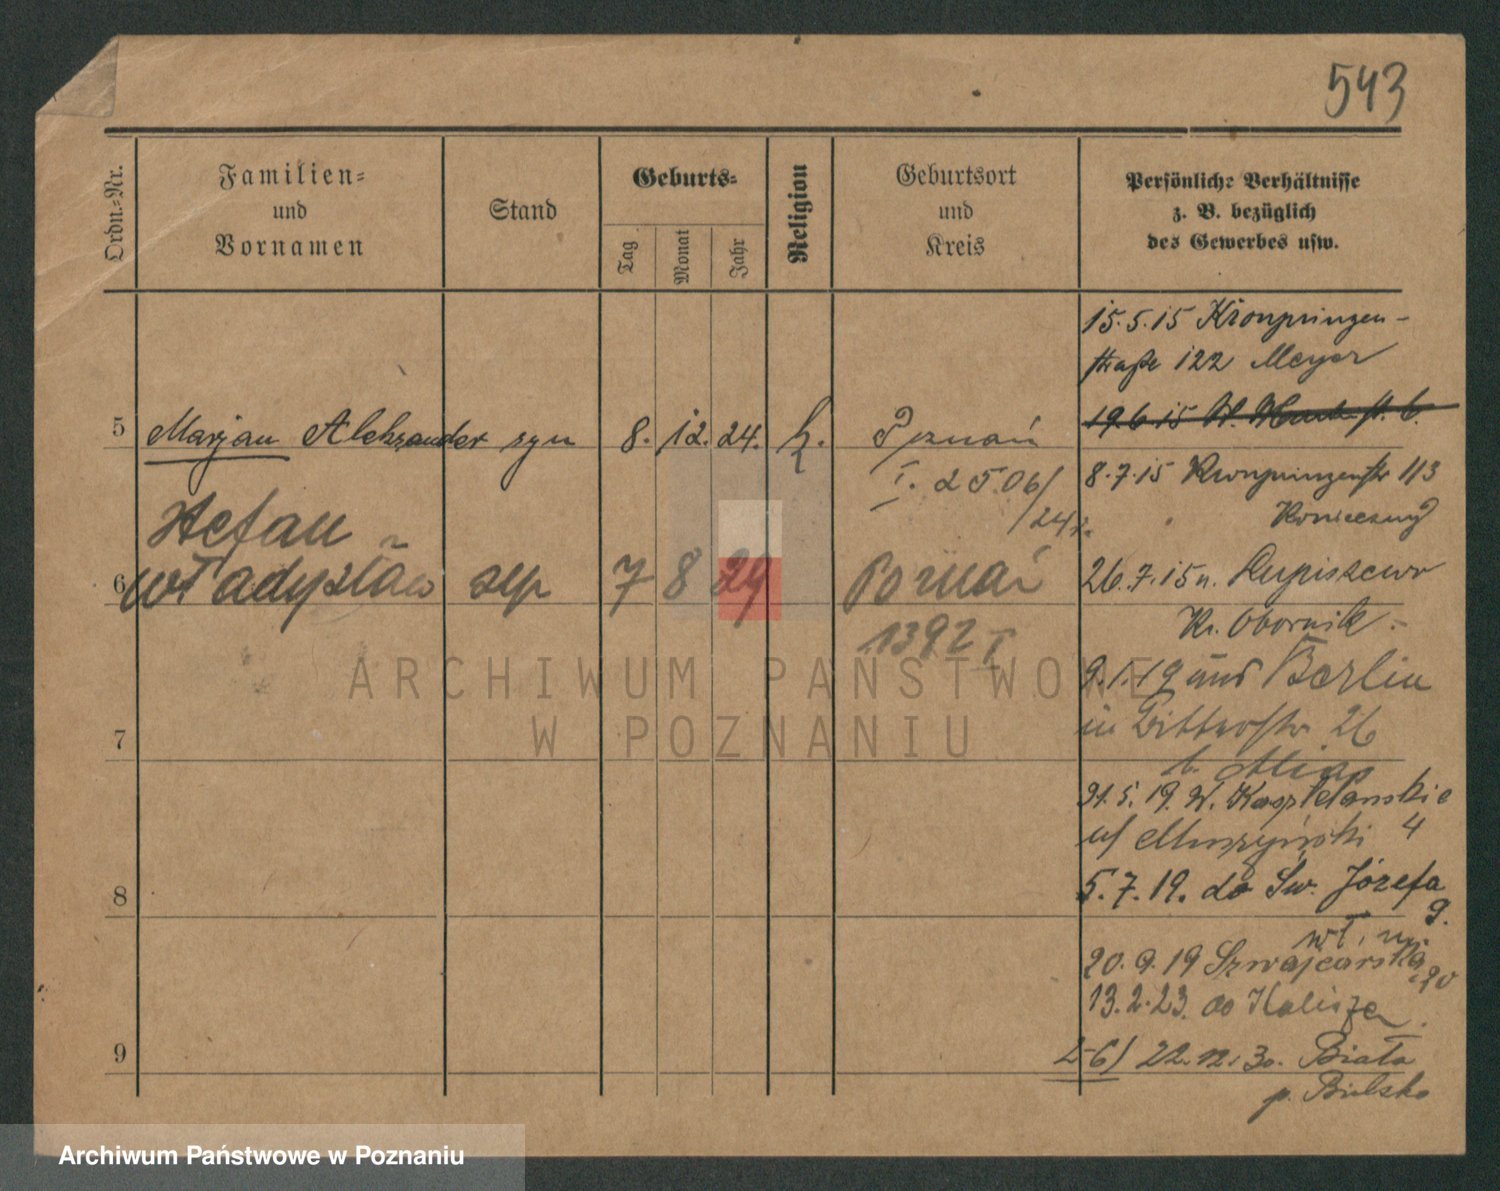 543
Ordn.-Nr.
Familien-
und
Vornamen
Stand
Geburts-
Tag
Monat
Jahr
Religion
Geburtsort
und
Kreis
Persönliche Verhältnisse
z. B. bezüglich
des Gewerbes usw.
15.5.15 Kronprinzen-
straße 122 Meyer
19.6.15 W.
5 Marjan Aleksander syn 8. 12. 24. k. Poznań
I. 2506/
/24
8.7.15 Kronprinzenstr 113
Konieczny
Stefan
6 Władysław syn 7 8 29 Poznań
1392 I
26.7.15 n.
Kr. Obornik.
9.1.19 aus Berlin
in Bitterstr 26
b.
31.5.19. W. Kasztelanskie
u/ Muszyński 4
5.7.19. do Św. Józefa
9.
20.9.19 Szwajcarska
13.2.23. do Kalisza
5-6/ 22.12.30. Biała
p. Bielsko
7
8
9
ARCHIWUM PAŃSTWOWE
W POZNANIU
Archiwum Państwowe w Poznaniu